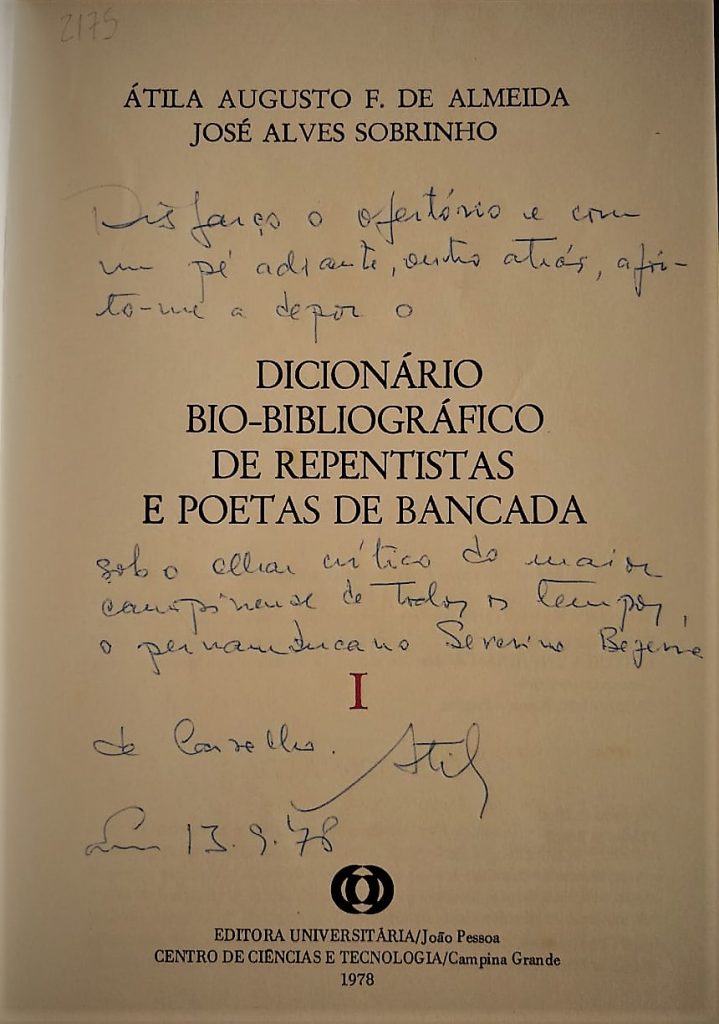 2175
ÁTILA AUGUSTO F. DE ALMEIDA
JOSÉ ALVES SOBRINHO
Disfarço o ofertório e com
um pé adiante, outro atrás, afoi-
to-me a depor o
DICIONÁRIO
BIO-BIBLIOGRÁFICO
DE REPENTISTAS
E POETAS DE BANCADA
sob o olhar crítico do maior
campinense de todos os tempos,
o pernambucano Severino Bezerra
I
de Carvalho. Átila
Em 13.9.78
EDITORA UNIVERSITÁRIA/João Pessoa
CENTRO DE CIÊNCIAS E TECNOLOGIA/Campina Grande
1978